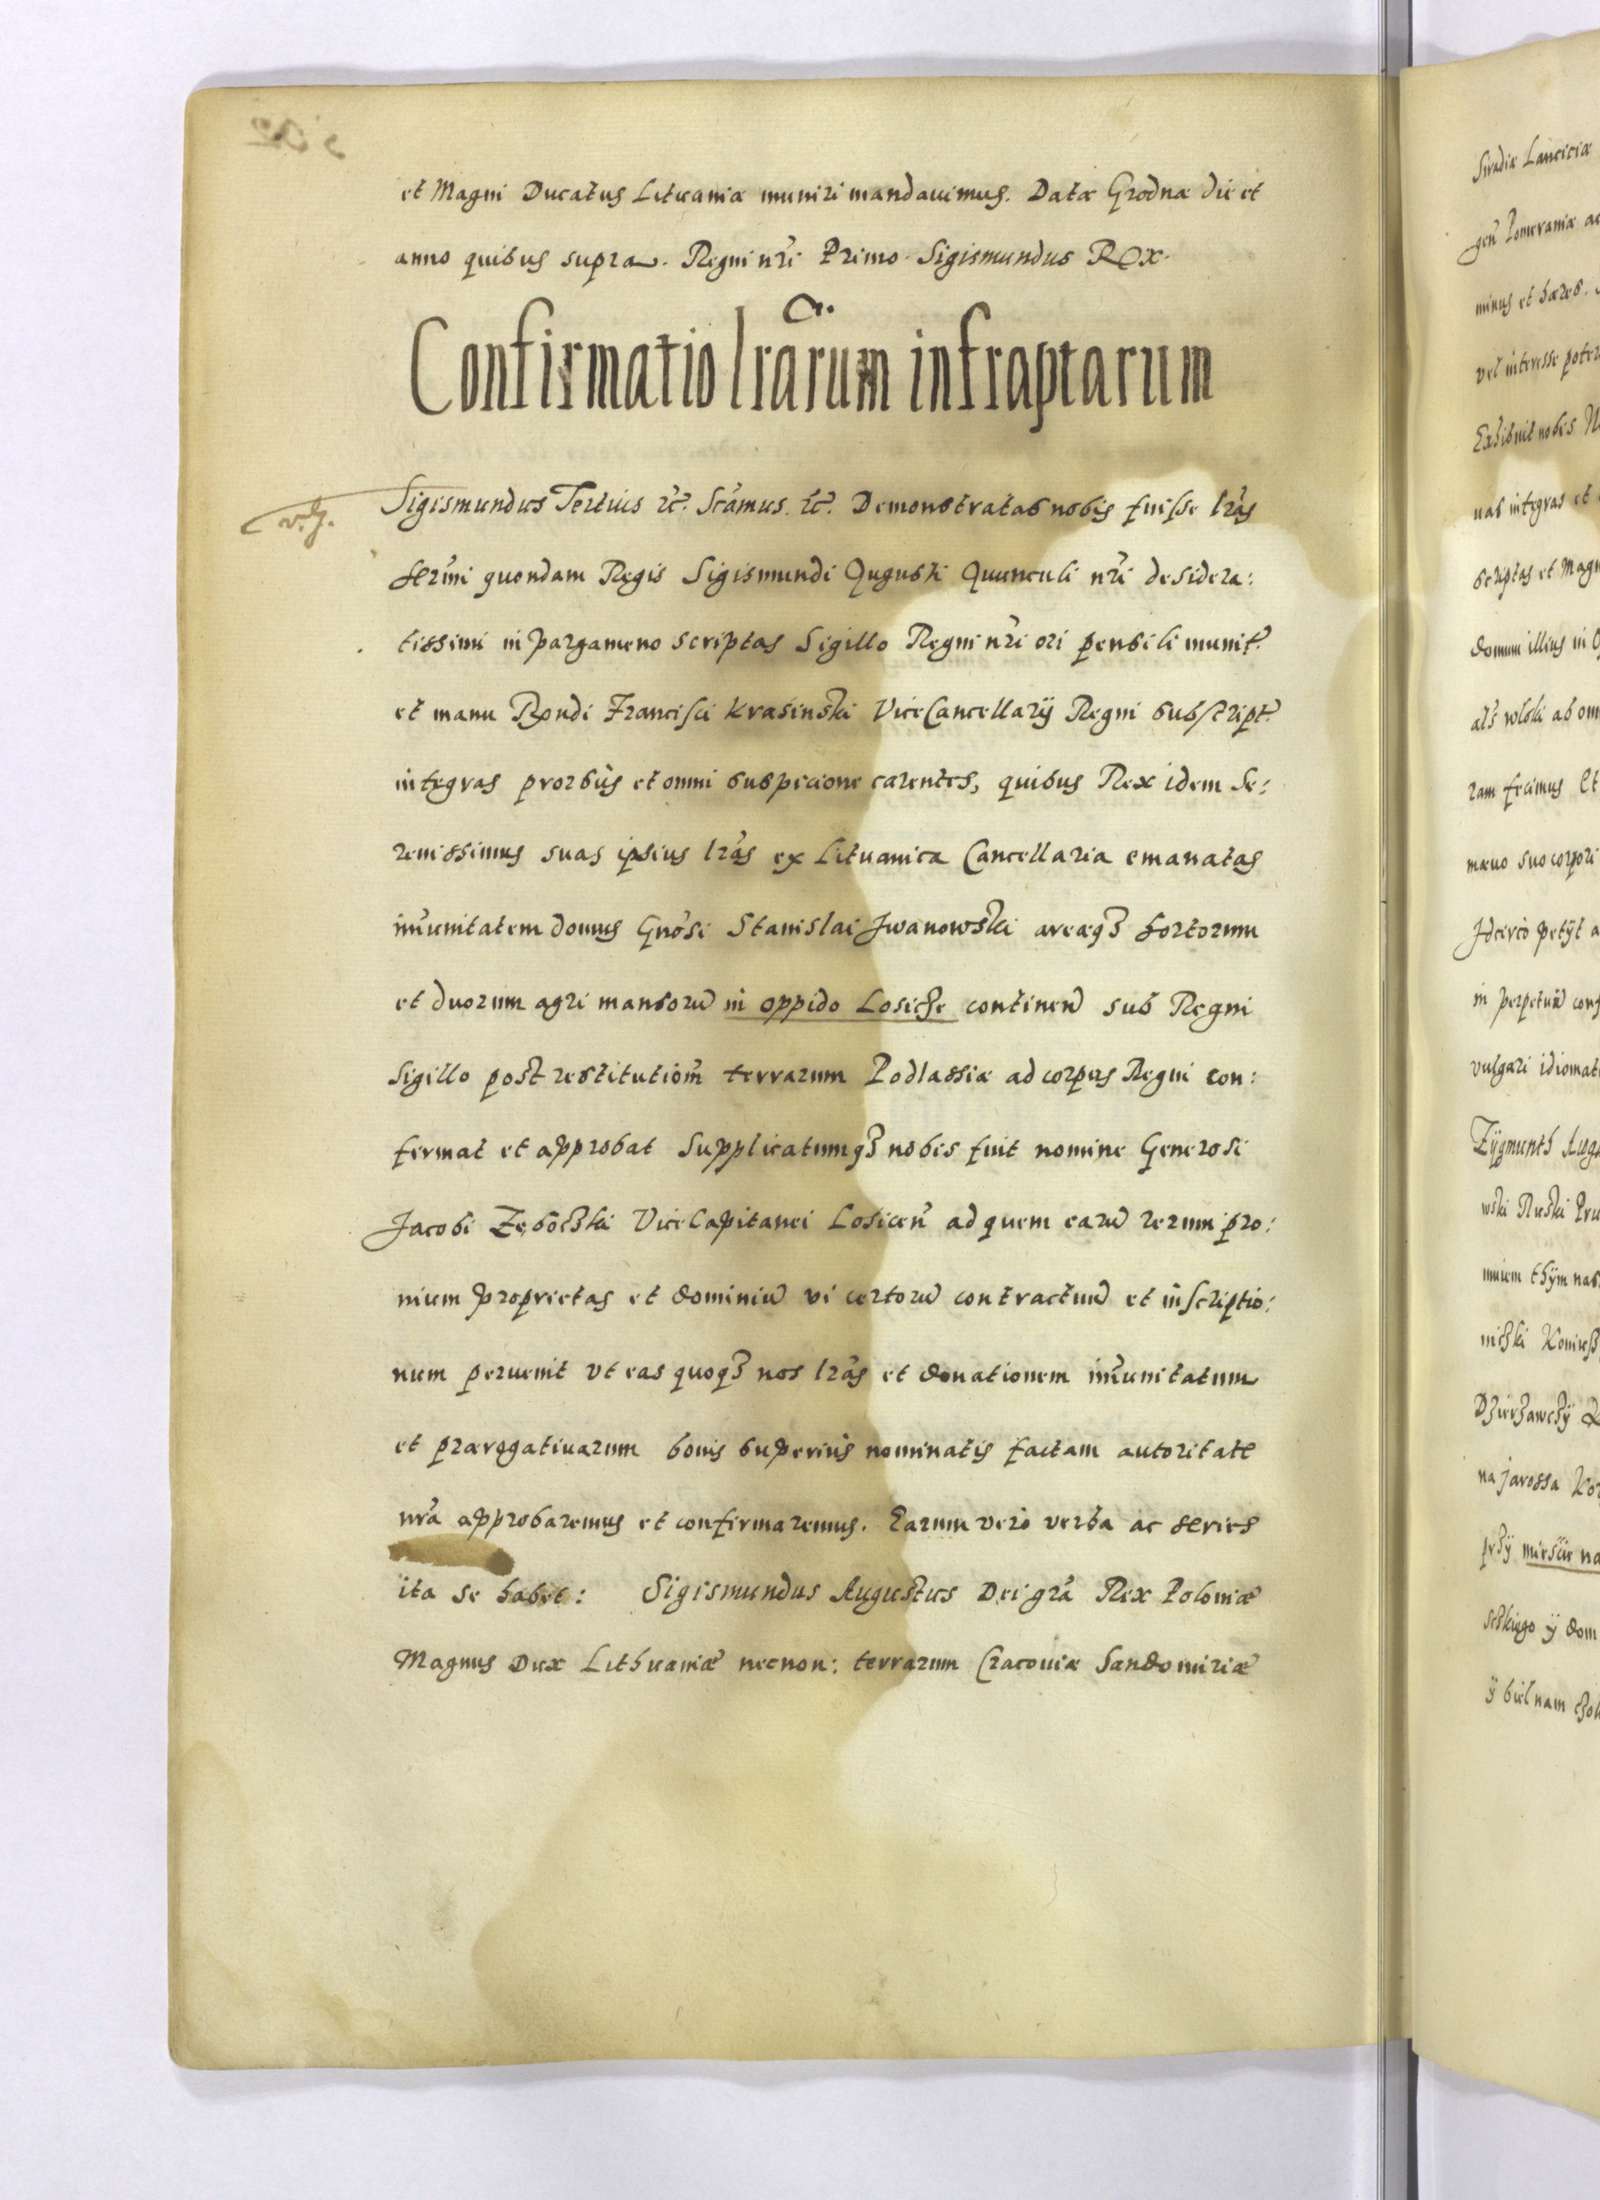 et Magni Ducatus Lituaniæ muniri mandavimus. Datæ Grodnæ die et
anno quibus supra. Regni nr̃i Primo. Sigismundus Rex.
Confirmatio lrãrum infraptarum
Sigismundus Tertius etc̃. Scãmus. etc̃. Demonstratas nobis fuisse lrãs
serm̃i quondam Regis Sigismundi Augusti Avunculi nr̃i desidera:
tissimi in pargameno scriptas Sigillo Regni nr̃i ori pensili munit̃.
et manu Rɳdi Francisci Krasinski ViceCancellarij Regni subscript̃.
integras prorsùs et omni suspicione carentes, quibus Rex idem Se:
renissimus suas ipsius lrãs ex Lituanica Cancellaria emanatas
im̃unitatem domus Gnõsi Stanislai Jwanowski areæq3 hortorum
et duorum agri mansorũ in oppido Losicze continen̄ sub Regni
Sigillo post restitutiom̃ terrarum Podlassiæ ad corpus Regni con:
fermat et approbat Supplicatumq3 nobis fuit nomine Generosi
Jacobi Zęboczki ViceCapitanei Losicen̄ ad quem earũ rerum pro:
nium proprietas et dominiũ vi certorũ contractuũ et inscriptio:
num pervenit vt eas quoq3 nos lrãs et donationem im̃unitatum
et prærogativarum bonis superiùs nominatis factam autoritate
nrã approbaremus et confirmaremus. Earum verò verba ac series
ita se habet: Sigismundus Augustus Dei grã Rex Poloniæ
Magnus Dux Lithuaniæ necnon: terrarum Cracoviæ Sandomiriæ
Siradiæ Lanciciæ
gen̄ Pomeraniæ
minus et hæres.
vel interesse
Exhibuit nobis
uas integras et
scriptas et
domum illius in
ram fecimus
mæuo suo corpori
Jdcircò petijt
in perpetuũ
vulgari
Zÿgmunth
wski Ruski
na jarossa
mieście na
ÿ dom